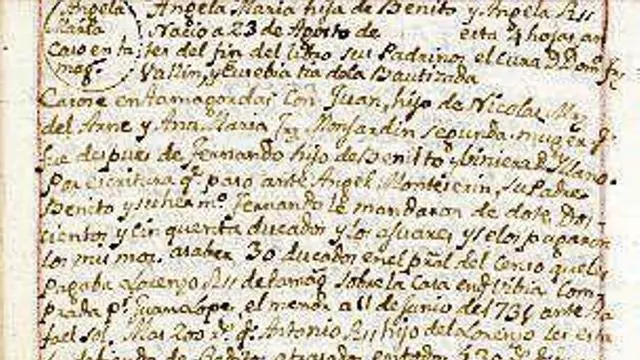 Angela Maria Caso en ta mag.ª
Angela Maria hija de Benito y Angela Rȷȷ
Nacio a 23 de Agosto de esta 4 hojas an
tes del fin del libro sus Padrinos el Cura D. Dom.º
Vallin, y Eusebia tia de la Bautizada
Casose en tamagordas con Juan, hijo de Nicolas Mrz
del Arne y Ana Maria frz Monjardin segunda muger q.
fue despues de Fernando hijo de Benito y biniera d
Por escritura q.ᵉ paso ante Angel Monteserin, su Padre
Benito y su herm.º Fernando le mandaron de dote, Dos
cientos y cinquenta ducados y los ajuares y se los pagaron
los mismos. asaber 30 ducados en el pral del Censo que les
pagaba Lorenzo Rȷȷ de tamag. sobre la Casa en Vibia Com
prada p.ʳ Juan Lope, el menor a 11 de Junio de 1731 ante
fael sol. Mas 200 q.ᵉ Antonio Rȷȷ hijo de Lorenzo les esta
debiendo de Reditos atrasados